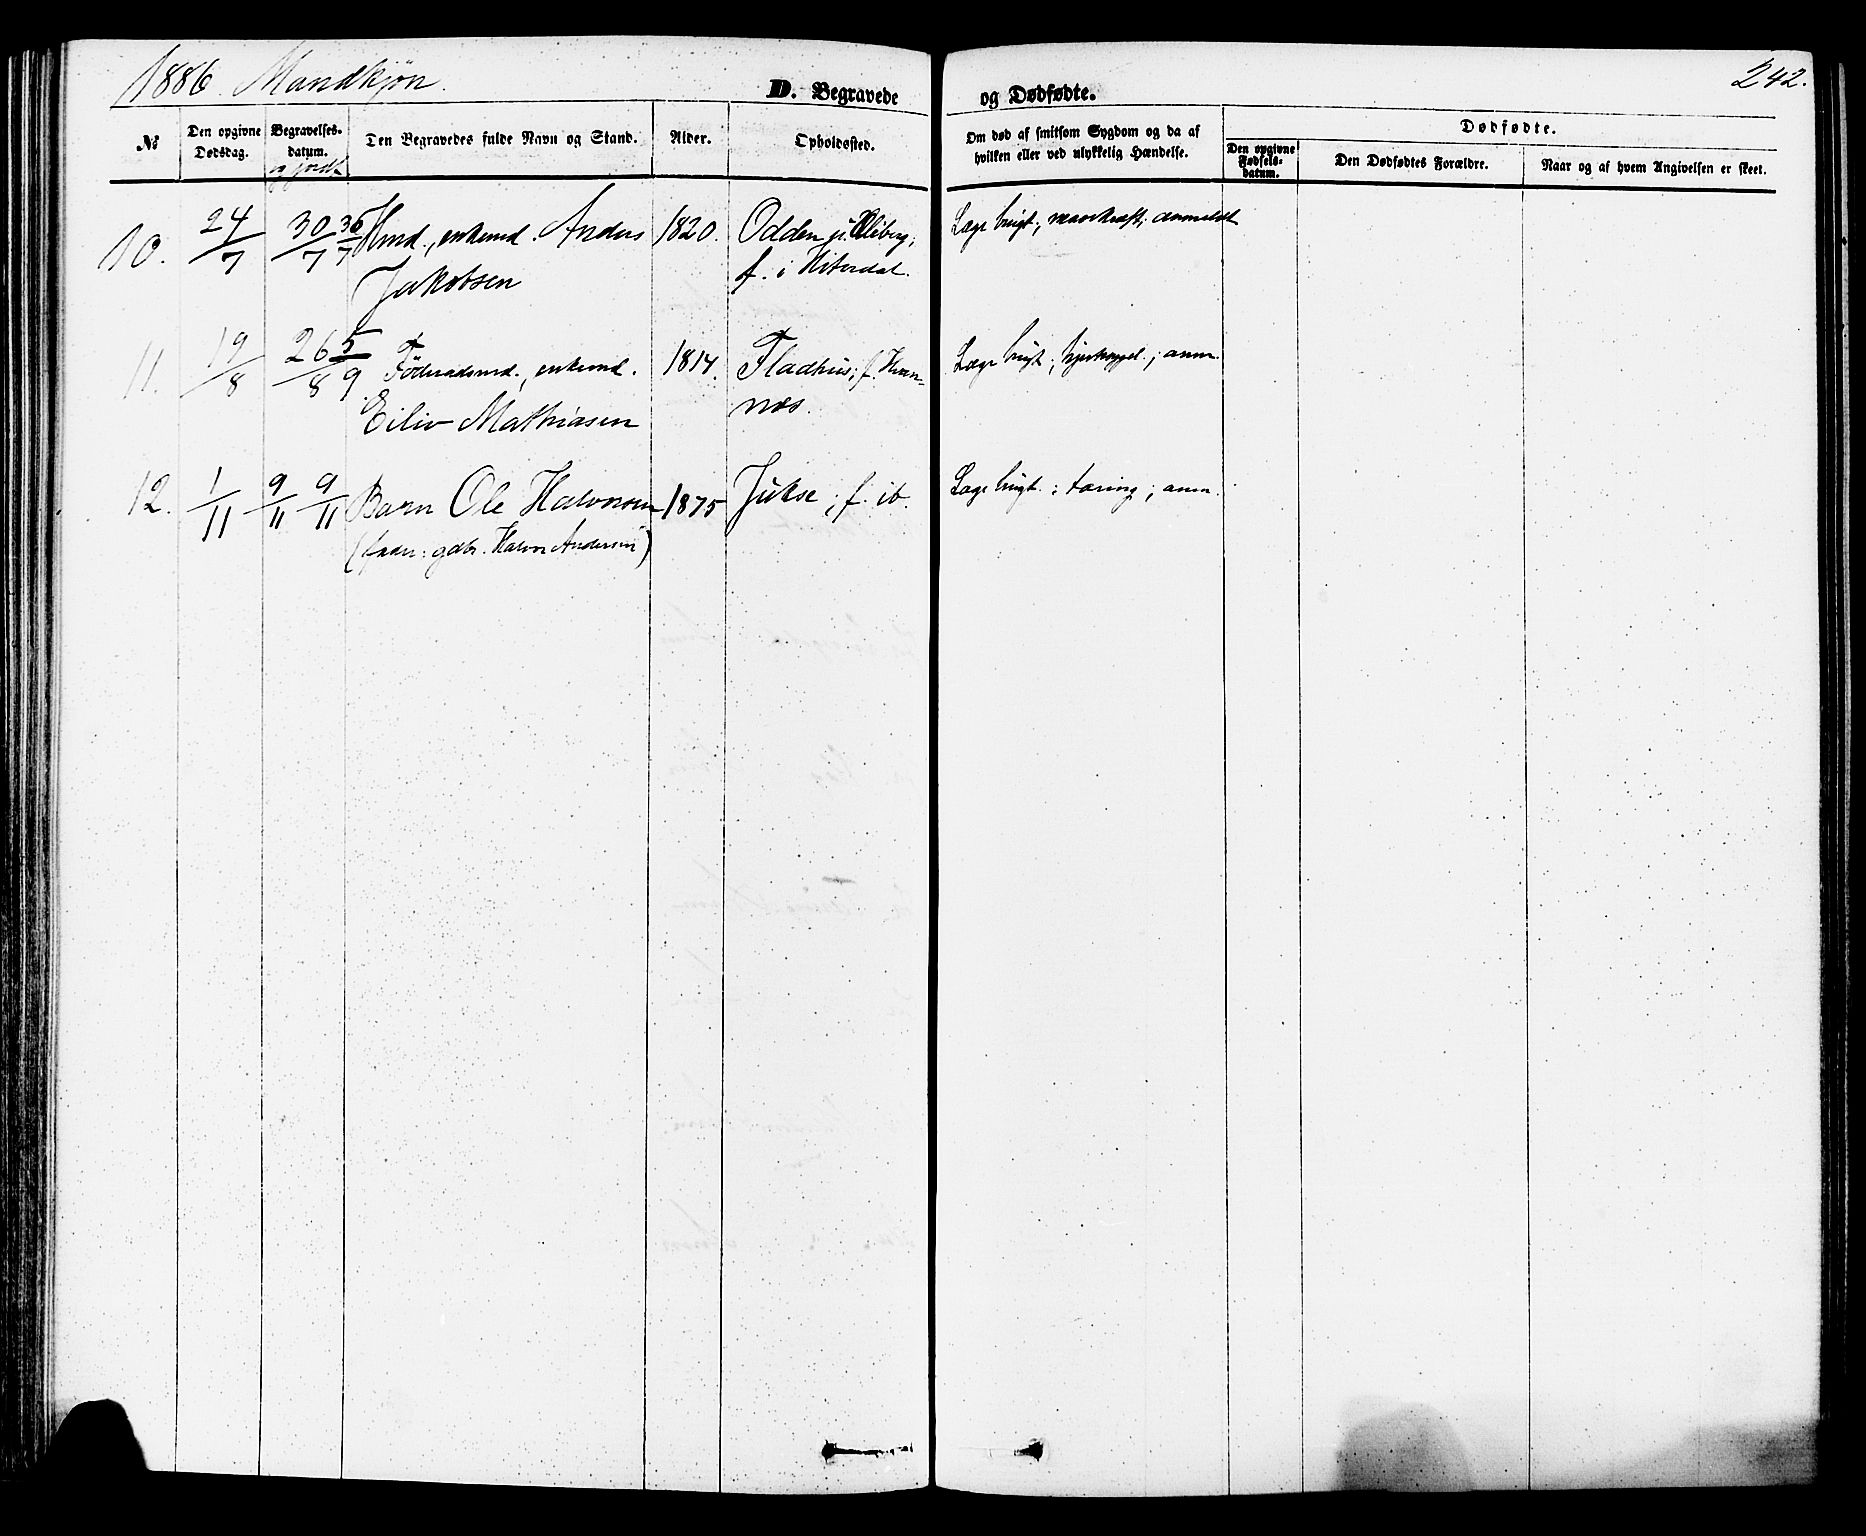 1886. Mandkjøn.
D. Begravede og Dødfødte.
242.
№
Den opgivne Dødsdag.
Begravelses-datum.
og jordf.
Den Begravedes fulde Navn og Stand.
Alder.
Opholdssted.
Om død af smitsom Sygdom og da af
hvilken eller ved ulykkelig Hændelse.
Dødfødte.
Den opgivne Fødsels-datum.
Den Dødfødtes Forældre.
Naar og af hvem Angivelsen er skeet.
10. 24/7 30/7 30/7 Hmd., enkemd. Anders 1820. Odden Læge brugt; anmeldt
Jakobsen f. i Hiterdal.
11. 19/8 26/8 5/9 Föderaadsmd., enkemd. 1814. Fladhus; f. Kvern- Læge brugt; anm.
Eiliv Mathiasen næs.
12. 1/11 9/11 9/11 Barn Ole Halvorsen 1875 Jukse; f. ib. Læge brugt: tæring; anm.
(fader: gdbr. Halvor Andersen)